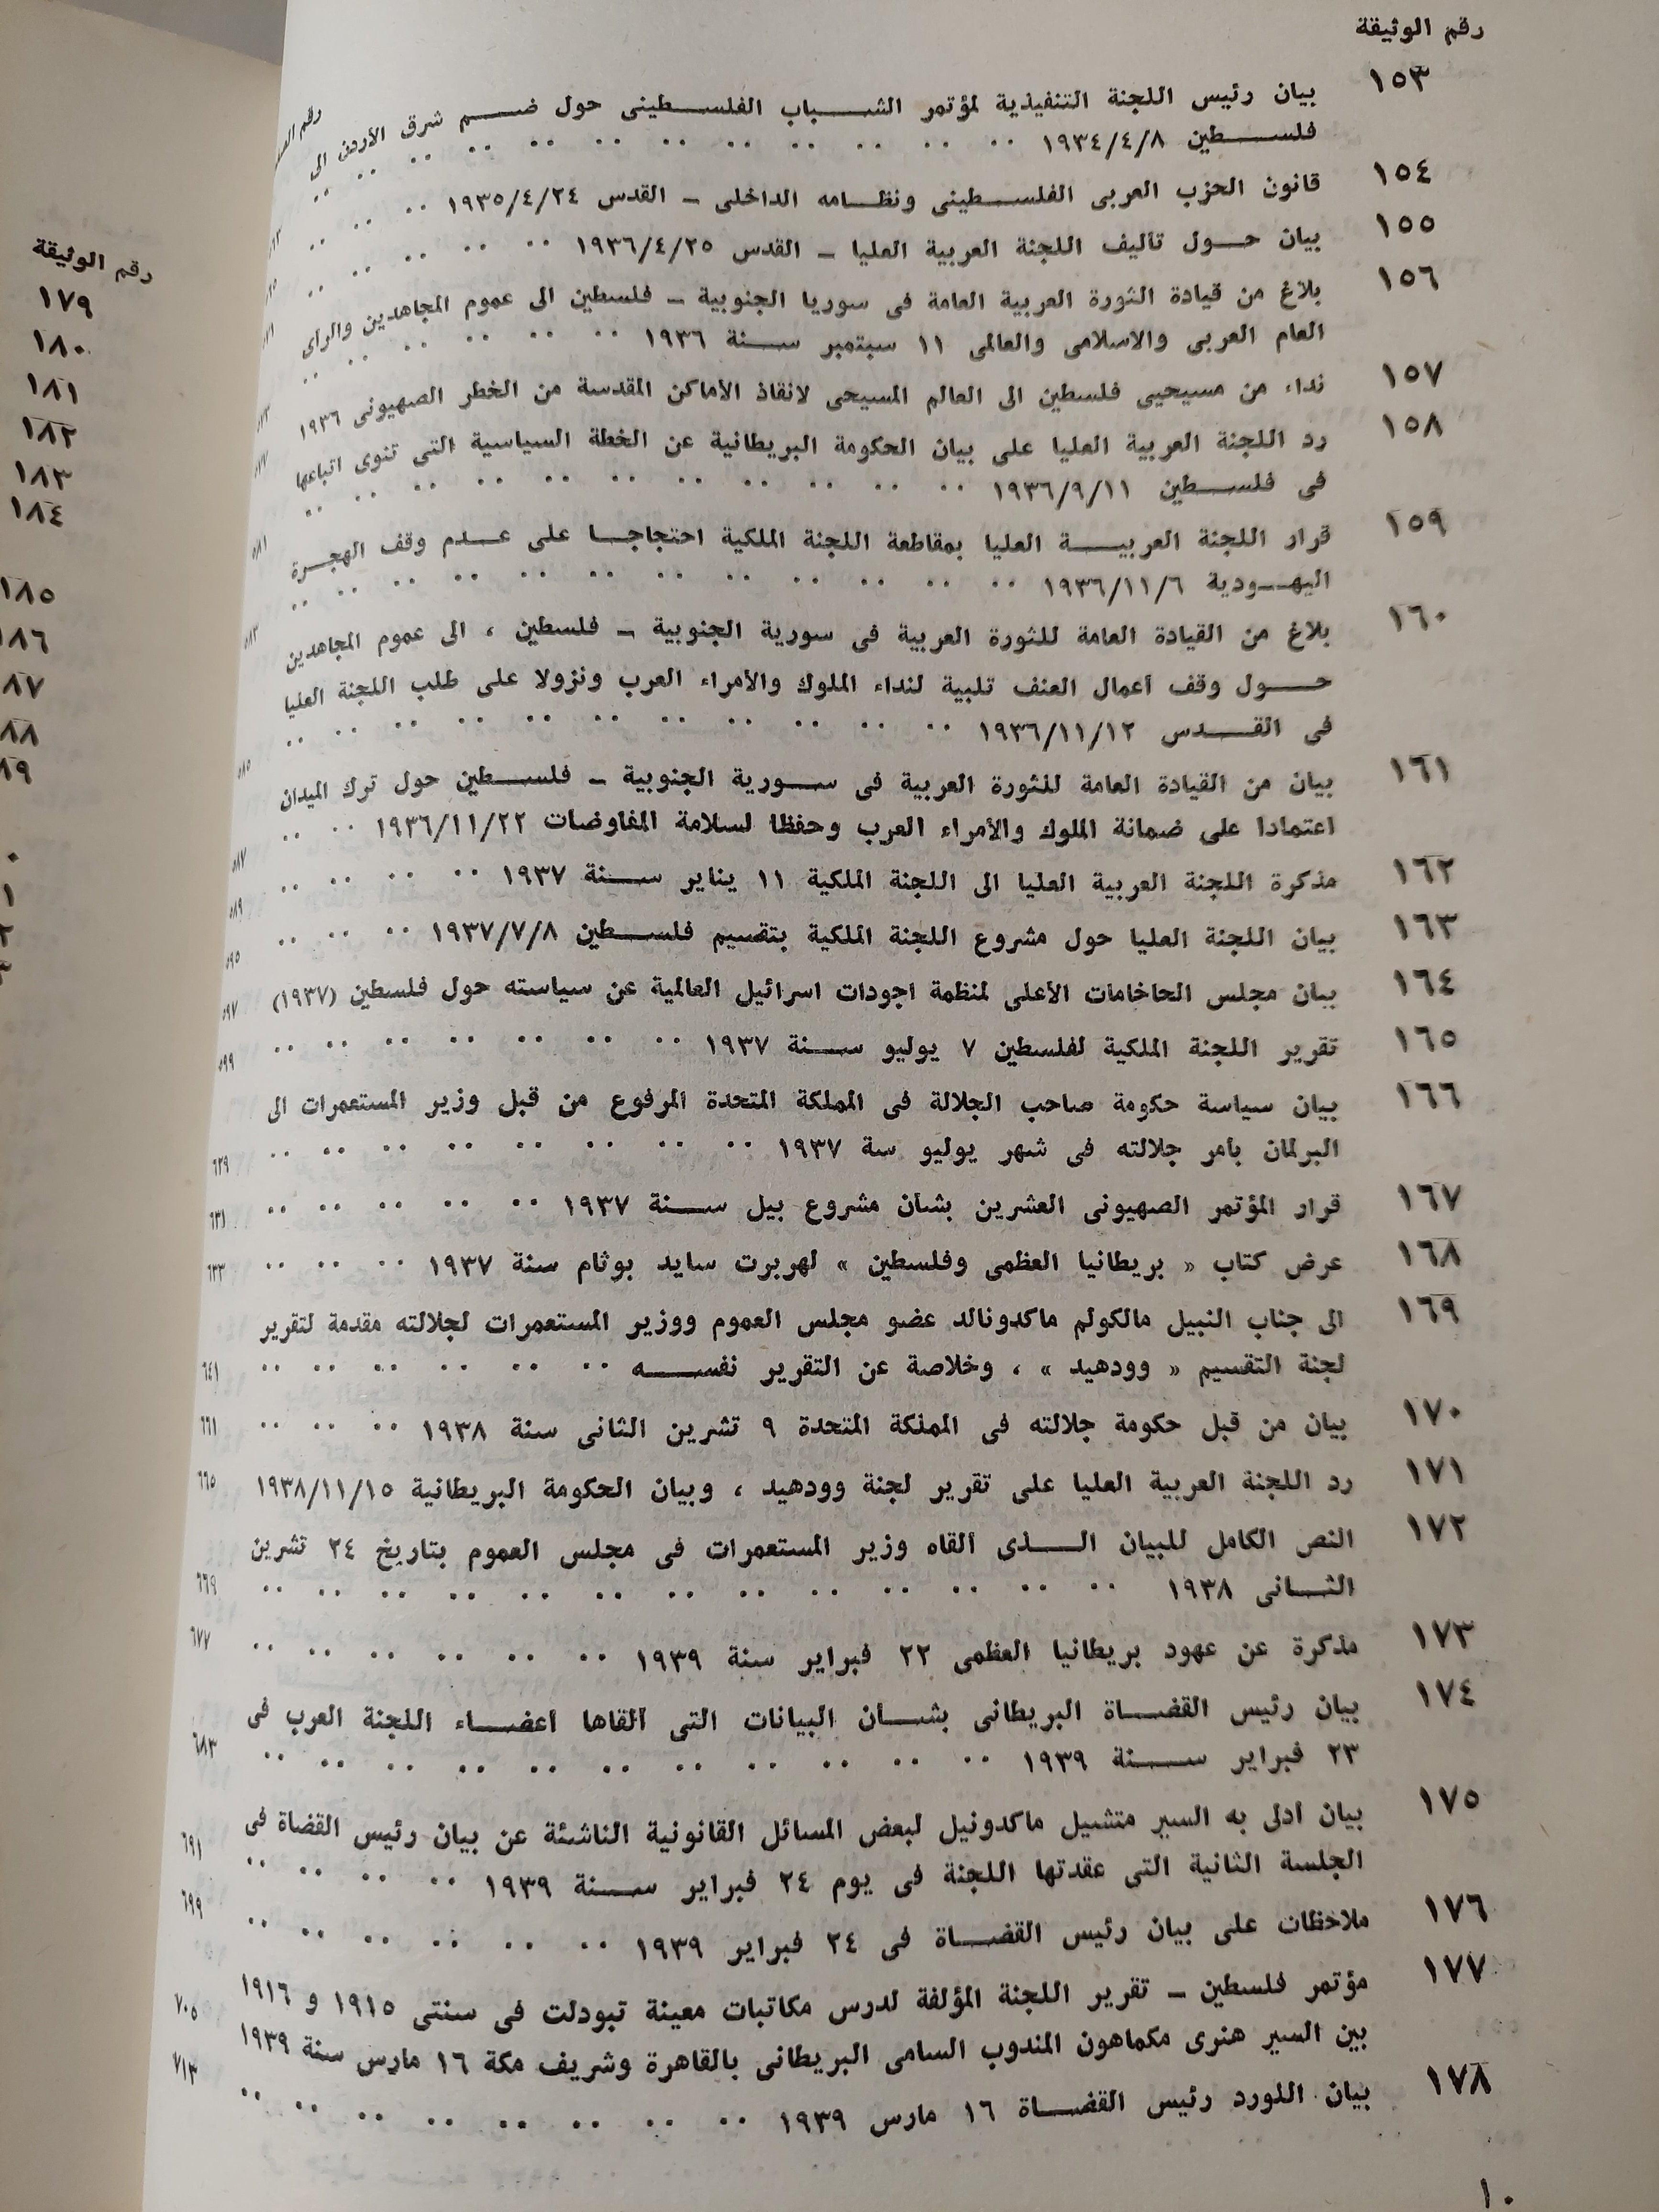 رقم الوثيقة
١٥٣ بيان رئيس اللجنة التنفيذية لمؤتمر الشباب الفلسطينى حول ضم شرق الأردن الى
فلسطين ١٩٣٤/٤/٨
١٥٤ قانون الحزب العربى الفلسطينى ونظامه الداخلى – القدس ١٩٣٥/٤/٢٤
١٥٥ بيان حول تأليف اللجنة العربية العليا – القدس ١٩٣٦/٤/٢٥
١٥٦ بلاغ من قيادة الثورة العربية العامة فى سوريا الجنوبية – فلسطين الى عموم المجاهدين والرأى
العام العربى والاسلامى والعالمى ١١ سبتمبر سنة ١٩٣٦
١٥٧ نداء من مسيحيى فلسطين الى العالم المسيحى لانقاذ الأماكن المقدسة من الخطر الصهيونى ١٩٣٦
١٥٨ رد اللجنة العربية العليا على بيان الحكومة البريطانية عن الخطة السياسية التى تنوى اتباعها
فى فلسطين ١٩٣٦/٩/١١
١٥٩ قرار اللجنة العربية العليا بمقاطعة اللجنة الملكية احتجاجا على عدم وقف الهجرة
اليهودية ١٩٣٦/١١/٦
١٦٠ بلاغ من القيادة العامة للثورة العربية فى سورية الجنوبية – فلسطين ، الى عموم المجاهدين
حول وقف أعمال العنف تلبية لنداء الملوك والأمراء العرب ونزولا على طلب اللجنة العليا
فى القدس ١٩٣٦/١١/١٢
١٦١ بيان من القيادة العامة للثورة العربية فى سورية الجنوبية – فلسطين حول ترك الميدان
اعتمادا على ضمانة الملوك والأمراء العرب وحفظا لسلامة المفاوضات ١٩٣٦/١١/٢٢
١٦٢ مذكرة اللجنة العربية العليا الى اللجنة الملكية ١١ يناير سنة ١٩٣٧
١٦٣ بيان اللجنة العليا حول مشروع اللجنة الملكية بتقسيم فلسطين ١٩٣٧/٧/٨
١٦٤ بيان مجلس الحاخامات الأعلى لمنظمة اجودات اسرائيل العالمية عن سياسته حول فلسطين (١٩٣٧) ٥٩٧
١٦٥ تقرير اللجنة الملكية لفلسطين ٧ يوليو سنة ١٩٣٧ ٥٩٩
١٦٦ بيان سياسة حكومة صاحب الجلالة فى المملكة المتحدة المرفوع من قبل وزير المستعمرات الى
البرلمان بأمر جلالته فى شهر يوليو سة ١٩٣٧ ٦٢٩
١٦٧ قرار المؤتمر الصهيونى العشرين بشأن مشروع بيل سنة ١٩٣٧ ٦٣١
١٦٨ عرض كتاب « بريطانيا العظمى وفلسطين » لهربرت سايد بوثام سنة ١٩٣٧ ٦٣٣
١٦٩ الى جناب النبيل مالكولم ماكدونالد عضو مجلس العموم ووزير المستعمرات لجلالته مقدمة لتقرير
لجنة التقسيم « وودهيد » ، وخلاصة عن التقرير نفسه ٦٤١
١٧٠ بيان من قبل حكومة جلالته فى المملكة المتحدة ٩ تشرين الثانى سنة ١٩٣٨ ٦٦١
١٧١ رد اللجنة العربية العليا على تقرير لجنة وودهيد ، وبيان الحكومة البريطانية ١٩٣٨/١١/١٥ ٦٦٥
١٧٢ النص الكامل للبيان الذى ألقاه وزير المستعمرات فى مجلس العموم بتاريخ ٢٤ تشرين
الثانى ١٩٣٨ ٦٦٩
١٧٣ مذكرة عن عهود بريطانيا العظمى ٢٢ فبراير سنة ١٩٣٩ ٦٧٧
١٧٤ بيان رئيس القضاة البريطانى بشأن البيانات التى ألقاها أعضاء اللجنة العرب فى
٢٣ فبراير سنة ١٩٣٩ ٦٨٣
١٧٥ بيان أدلى به السير متشيل ماكدونيل لبعض المسائل القانونية الناشئة عن بيان رئيس القضاة فى
الجلسة الثانية التى عقدتها اللجنة فى يوم ٢٤ فبراير سنة ١٩٣٩ ٦٩١
١٧٦ ملاحظات على بيان رئيس القضاة فى ٢٤ فبراير ١٩٣٩ ٦٩٩
١٧٧ مؤتمر فلسطين – تقرير اللجنة المؤلفة لدرس مكاتبات معينة تبودلت فى سنتى ١٩١٥ و ١٩١٦
بين السير هنرى مكماهون المندوب السامى البريطانى بالقاهرة وشريف مكة ١٦ مارس سنة ١٩٣٩ ٧٠٥
١٧٨ بيان اللورد رئيس القضاة ١٦ مارس ١٩٣٩ ٧١٣
١٠
رقم الوثيقة
١٧٩
١٨٠
١٨١
١٨٢
١٨٣
١٨٤
١٨٥
١٨٦